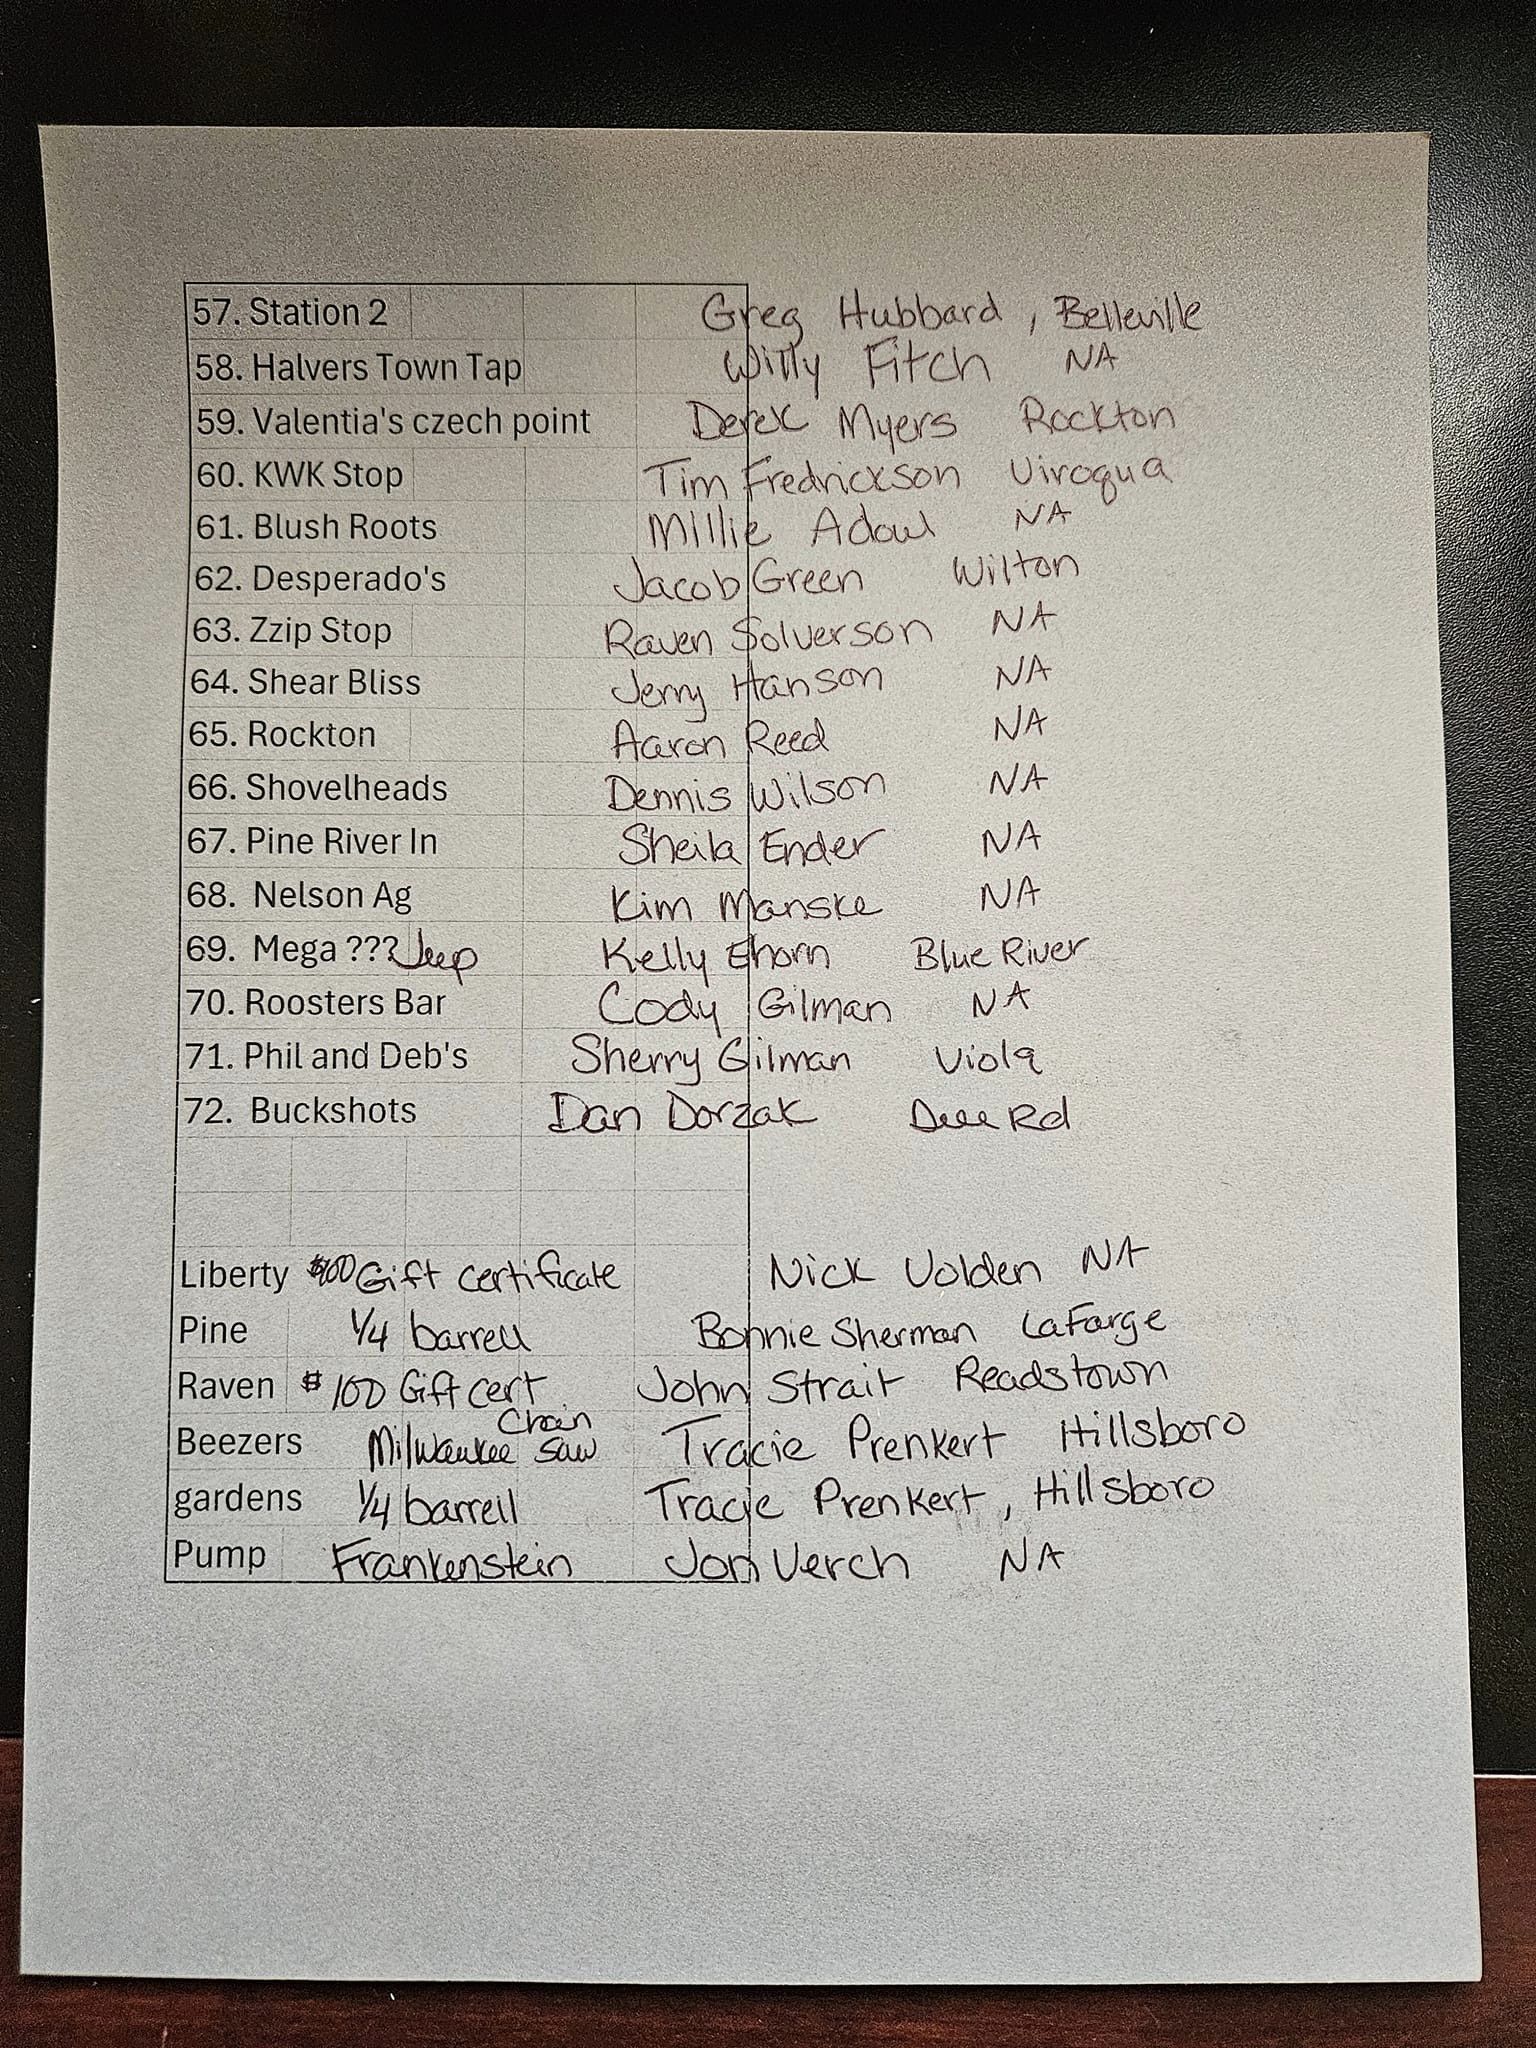 57. Station 2 Greg Hubbard, Belleville
58. Halvers Town Tap Willy Fitch NA
59. Valentia's czech point Derek Myers Rockton
60. KWK Stop Tim Fredrickson Viroqua
61. Blush Roots Millie NA
62. Desperado's Jacob Green Wilton
63. Zzip Stop Raven Solverson NA
64. Shear Bliss Jerry Hanson NA
65. Rockton Aaron Reed NA
66. Shovelheads Dennis Wilson NA
67. Pine River In Sheila Ender NA
68. Nelson Ag Kim Manske NA
69. Mega ??? Jeep Kelly Ehorn Blue River
70. Roosters Bar Cody Gilman NA
71. Phil and Deb's Sherry Gilman Viola
72. Buckshots Dan Dorzak Rd
Liberty $100 Gift certificate Nick Volden NA
Pine 1/4 barrell Bonnie Sherman LaFarge
Raven $100 Gift cert John Strait Readstown
Beezers Milwaukee Chain saw Tracie Prenkert Hillsboro
gardens 1/4 barrell Tracie Prenkert, Hillsboro
Pump Frankenstein Jon Verch NA